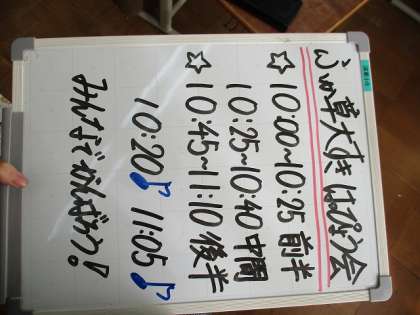 心の草大すき はっぴょう会
☆10:00~10:25 前半
10:25~10:40 中間
☆10:45~11:10 後半
10:20♪ 11:05♪
みんなでがんばろう!